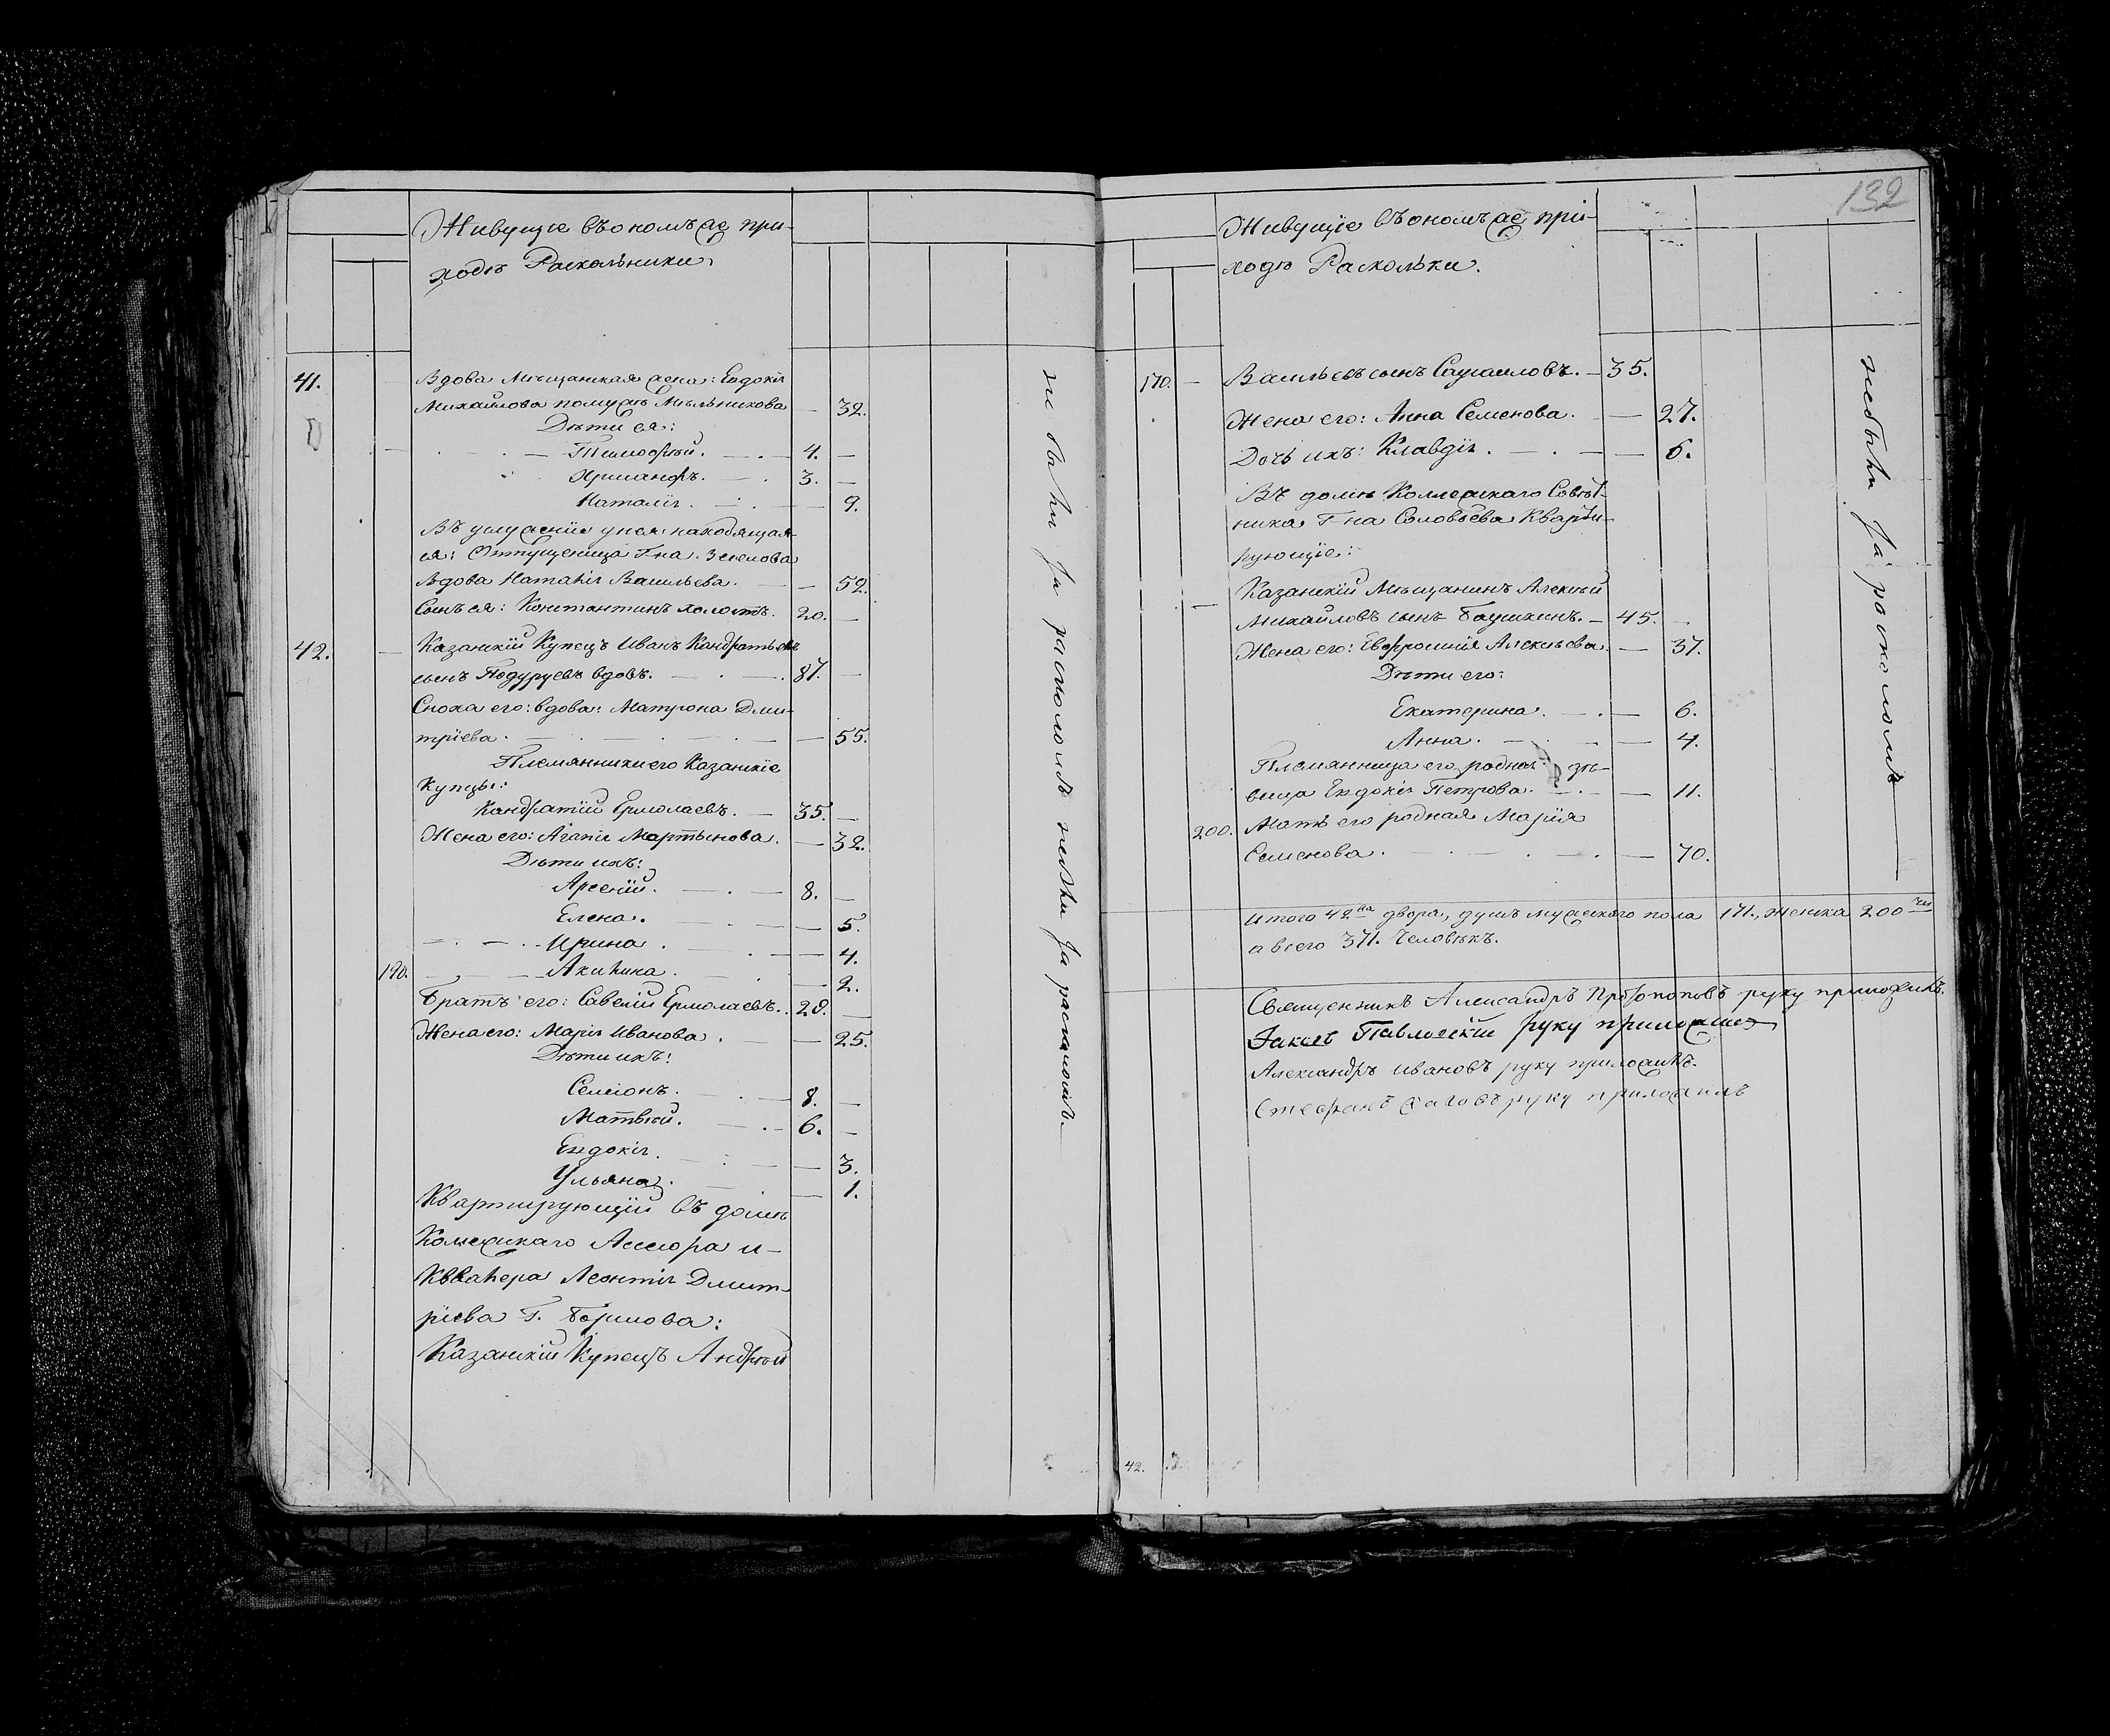 Живущіе въ ономъ же при-
ходѣ Раскольники.
41. Вдова Мѣщанская жена: Евдокія
Михайлова по мужѣ Мѣльникова — 32.
Дѣти ея:
Тимофѣй. 4. —
Хрисанфъ. 3. —
Наталія. — 9.
Въ услуженіи у нея находящая-
ся: Отпущеница Г-на
вдова Наталія Васильева. — 52.
Сынъ ея: Константинъ холостъ. 20. —
42. Казанскій Купецъ Иванъ Кандратьевъ
сынъ Подуруевъ вдовъ. 87. —
Сноха его: вдова: Матрона Дми-
тріева. — 55.
Племянники его Казанскіе
Купцы:
Кандратій Ермолаевъ. 35. —
Жена его: Агапія Мартынова. — 32.
Дѣти ихъ:
Арсеній. 8. —
Елена. — 5.
Ирина. — 4.
190. Акилина. — 2.
Братъ его: Савелій Ермолаевъ. 28. —
Жена его: Марія Иванова. — 25.
Дѣти ихъ:
Семіонъ. 8. —
Матвѣй. 6. —
Евдокія. — 3.
Ульяна. — 1.
Квартирующій въ домѣ
Колежскаго Ассесора и
Кавалера Леонтія Дмит-
ріева Г.
Казанскій Купецъ Андрѣй
не были за расколомъ не были за расколомъ.
132
Живущіе въ ономъ же при-
ходѣ Расколькки.
170. Васильевъ сынъ 35.
Жена его: Анна Семенова. — 27.
Дочь ихъ: Клавдія. — 5.
Въ домѣ Коллежскаго Совѣт-
ника Г-на Соловьева Кварти-
рующіе:
Казанскій Мѣщанинъ Алексѣй
Михайловъ сынъ 45. —
Жена его: Евфросинія Алексѣева. — 37.
Дѣти его:
Екатерина. — 6.
Анна. — 4.
Племянница его родная дѣ-
вица Евдокія Петрова. — 11.
200. Мать его родная Марія
Семенова. — 70.
не были за расколомъ
Итого 42ва двора, душъ мужескаго пола 171., женска 200
а всего 371. Человѣкъ.
Священникъ Александръ Протопоповъ руку приложилъ.
Павловскій руку приложилъ
Александръ Ивановъ руку приложилъ.
Стефанъ руку приложилъ
42.